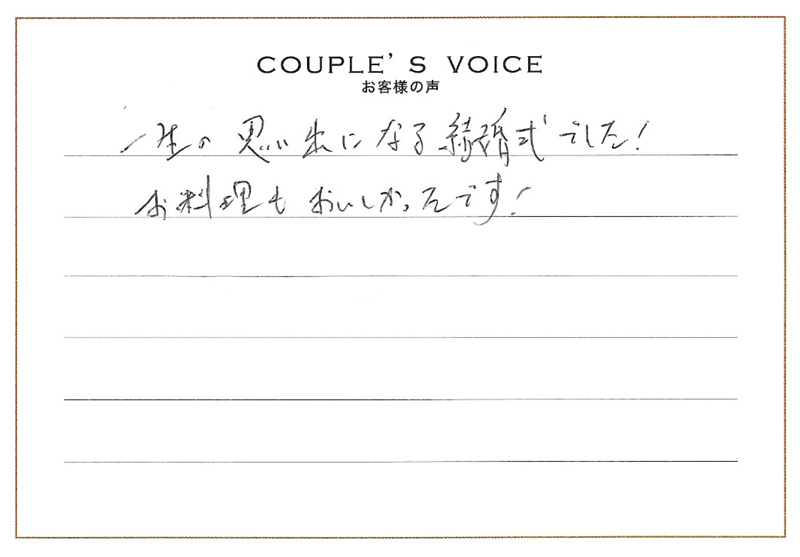 COUPLE'S VOICE
お客様の声
一生の思い出になる結婚式でした!
お料理もおいしかったです!